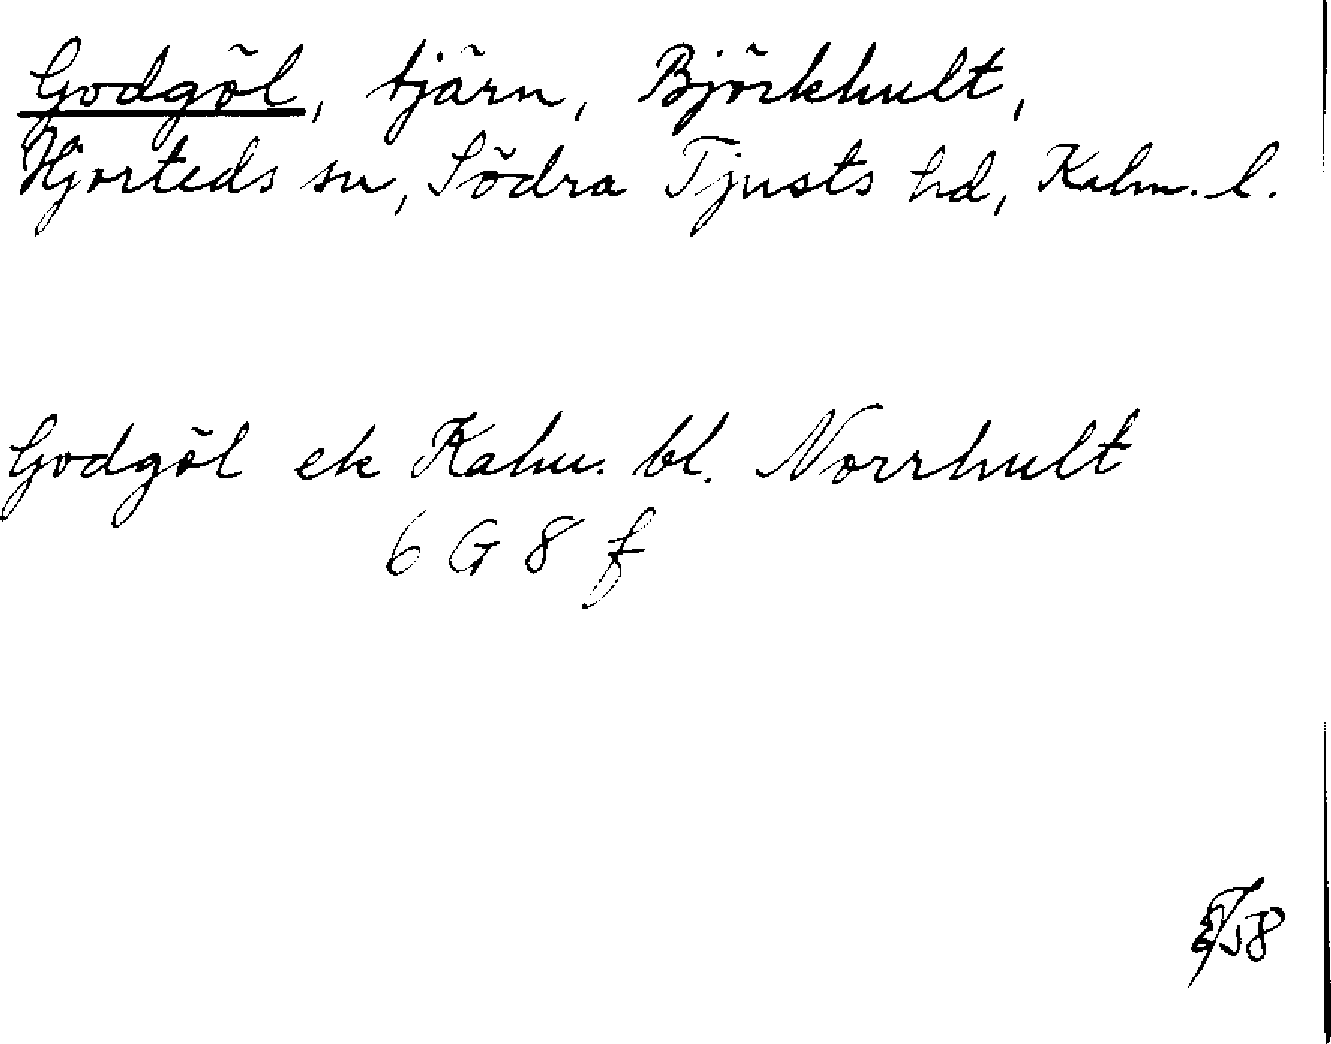 Godgöl, tjärn, Björkhult,
Hjorteds sn, Södra Tjusts hd, Kalm. l.
Godgöl ek Kalm. bl. Norrhult
6 G 8 f
58